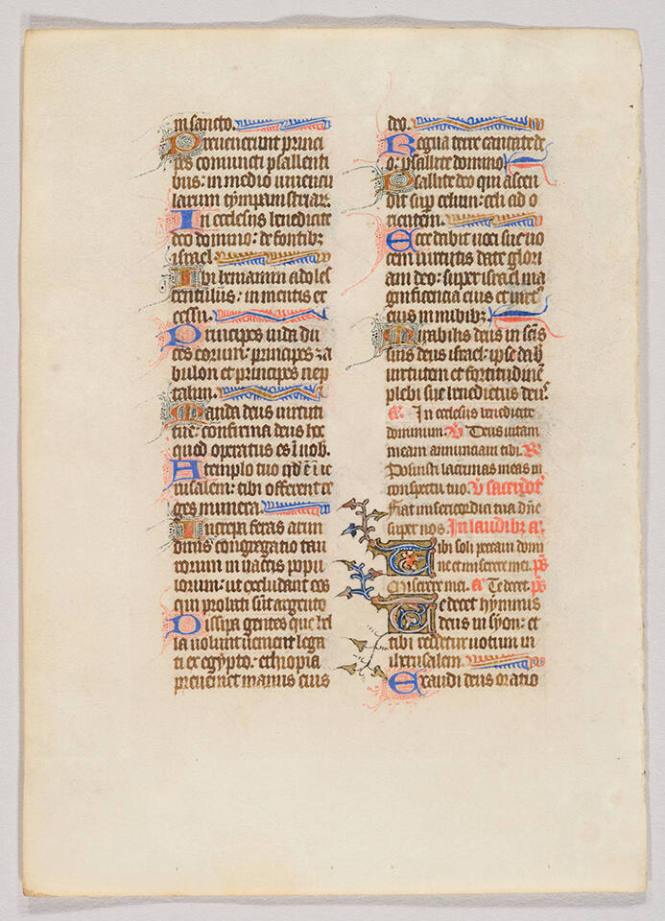 in sancto.
Prevenerunt princi
pes coniuncti psallenti
bus: in medio iuvencu
larum tympanistriarum.
In ecclesiis benedicite
deo domino: de fontibus
israel
Ibi beniamin adoles
centulus: in mentis ex
cessu.
Principes iuda du
ces eorum: principes za
bulon et principes nep
talim.
Manda deus virtuti
tue: confirma deus hoc
quod operatus es in nob.
A templo tuo qd est in ie
rusalem: tibi offerent re
ges munera.
Increpa feras arun
dinis congregatio tau
rorum in vaccis popu
lorum: ut excludant eos
qui probati sunt argento
Dissipa gentes que bel
la volunt venient lega
ti ex egypto: ethiopia
preveniet manus eius
deo.
Regna terre cantate de
o: psallite domino
Psallite deo qui ascen
dit sup celum: celi ad o
rientem.
Ecce dabit voci sue vo
cem virtutis date glori
am deo: super israel ma
gnificencia eius et virtus
eius in nubibus
Mirabilis deus in scis
suis deus israel: ipse dab
virtutem et fortitudine
plebi sue benedictus deus.
a. In ecclesiis benedicite
dominum. V Deus vitam
meam annunciavi tibi. R
Posuisti lacrimas meas in
conspectu tuo. V sacerdot
Fiat misericordia tua dne
super nos. In laudibz a.
Tibi soli peccavi domi
ne et miserere mei. ps
Miserere mei. a Te decet. ps
Te decet hymnus
deus in syon: et
tibi reddetur votum in
iherusalem.
Exaudi deus oratio